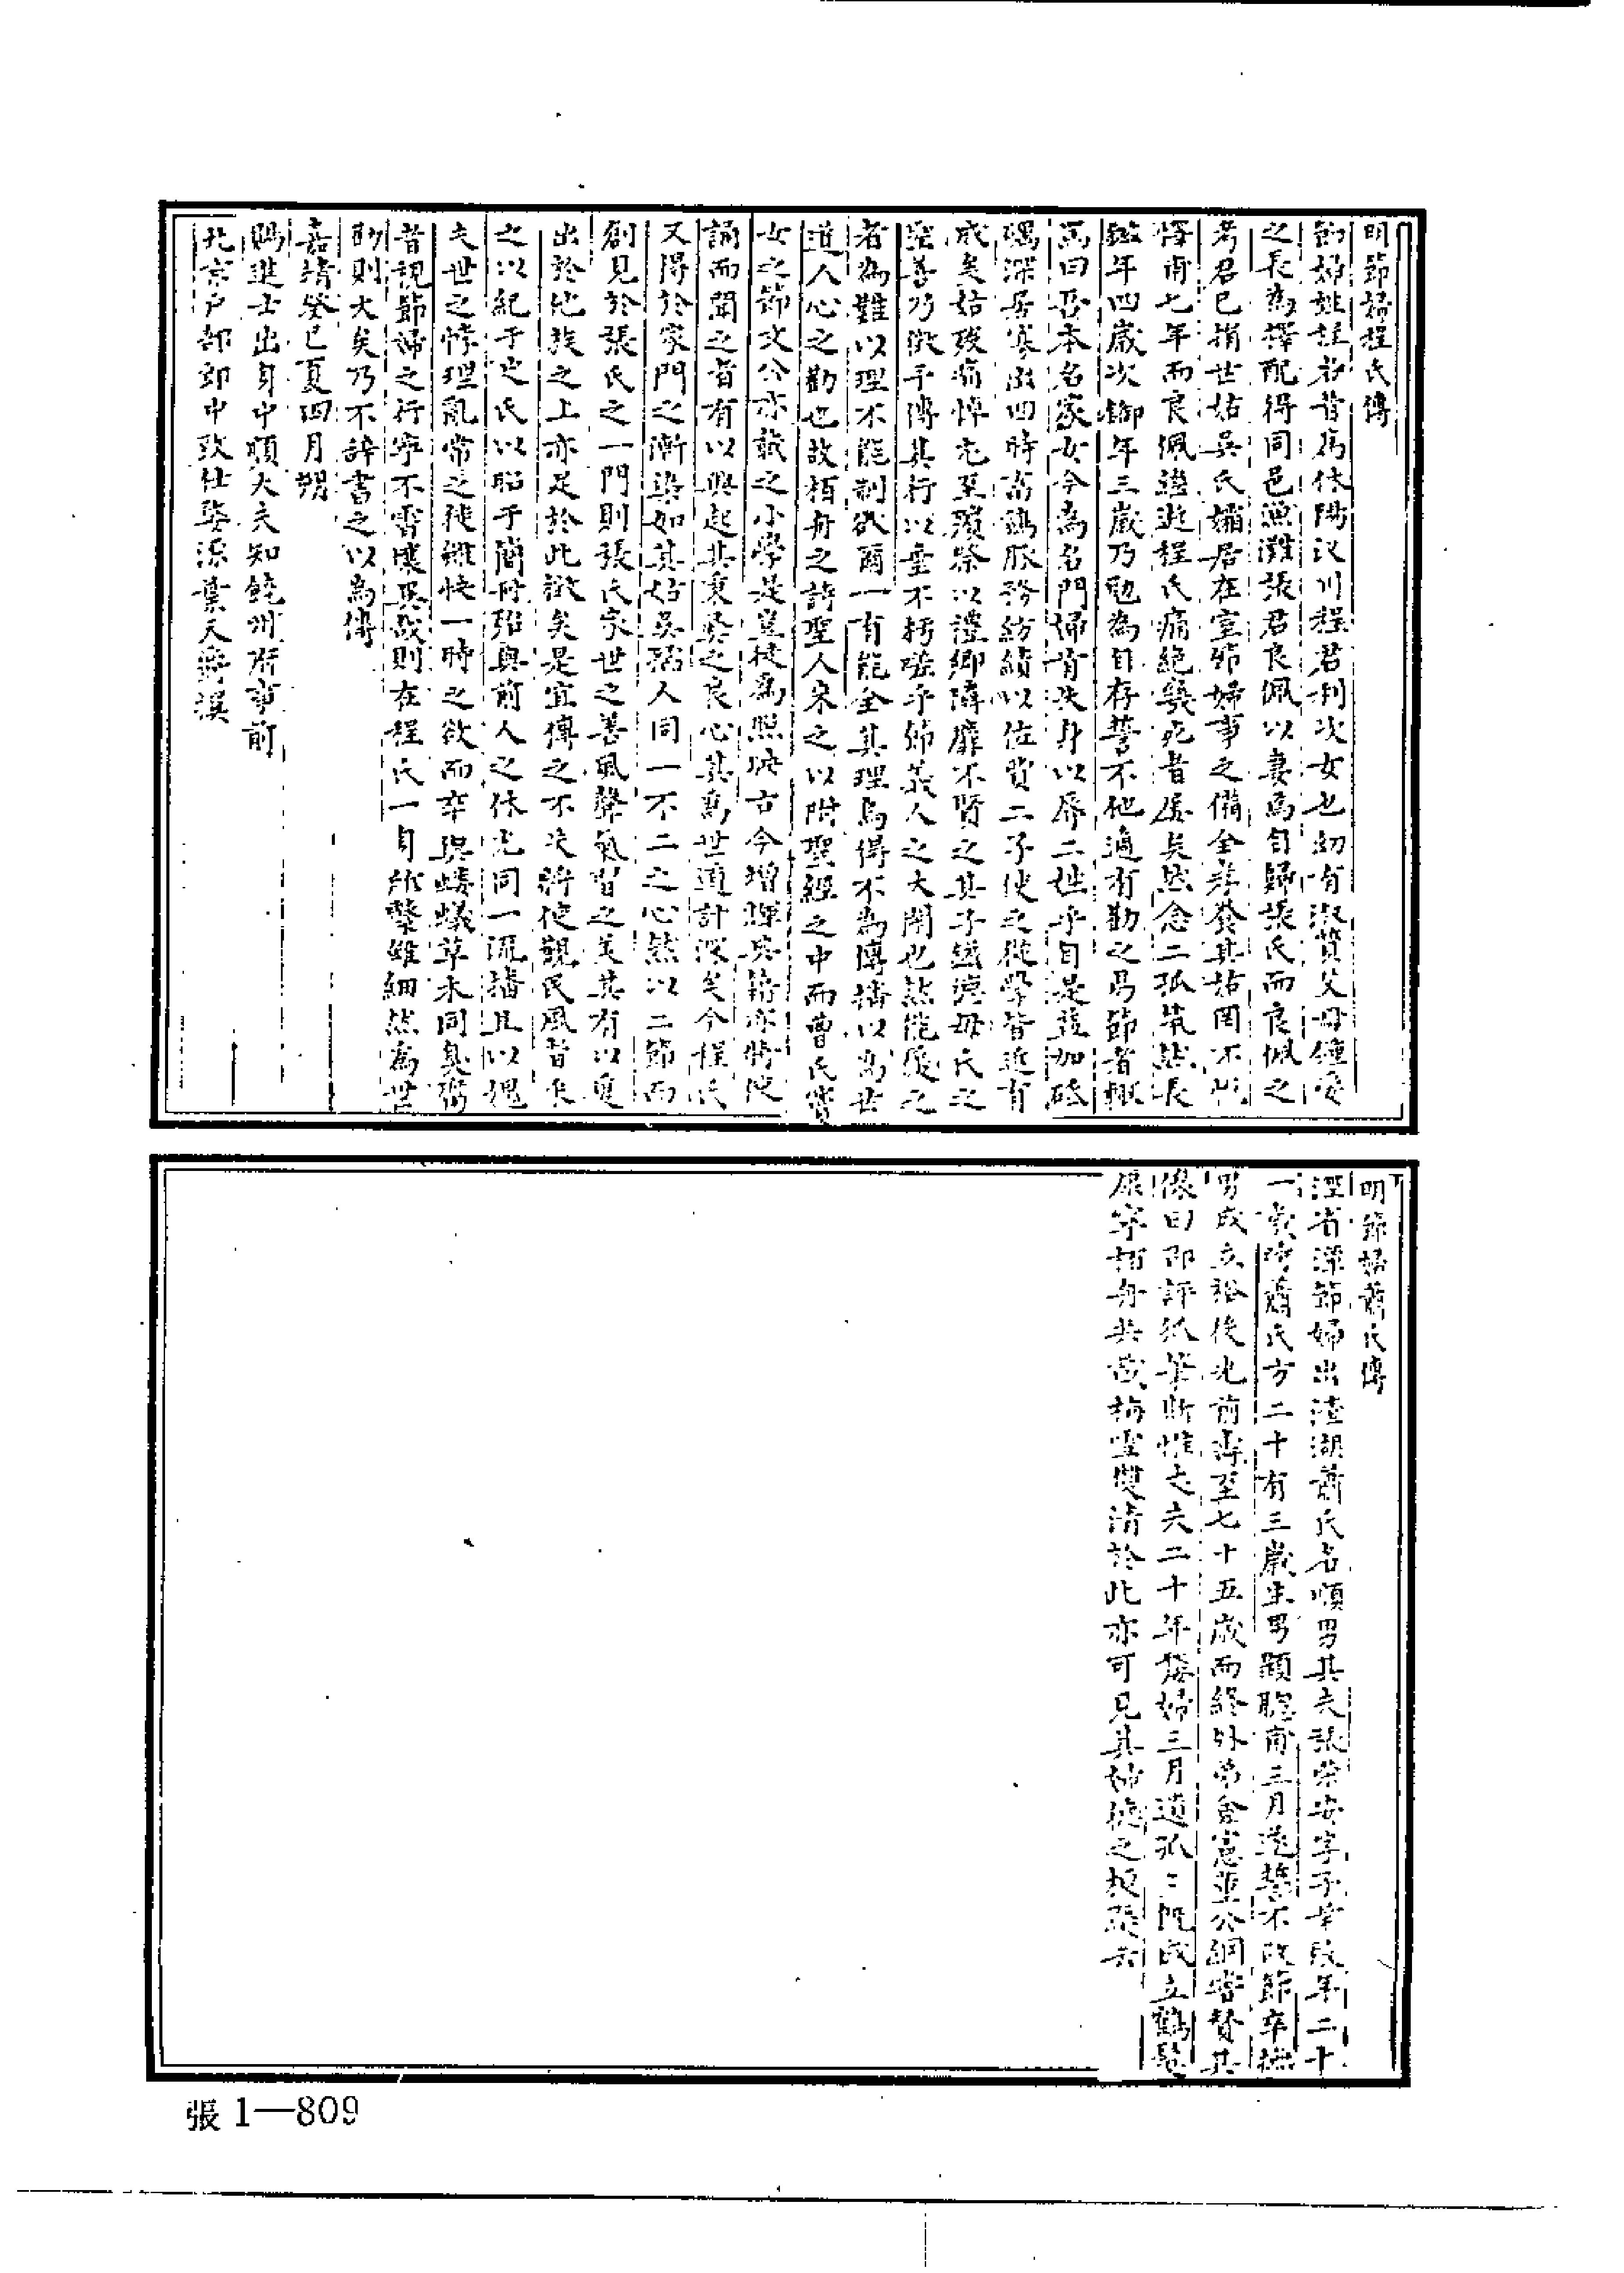 明節婦程氏傳
節婦姓程名昔為休陽汊川程君利次女也幼有淑質父母鍾愛
之長為擇配得同邑漁灘張君良佩以妻焉自歸張氏而良佩之
考君已捐世姑吳氏孀居在室節婦事之備全孝養其姑罔不悅
懌甫七年而良佩遘逝程氏痛絕幾死者屢矣然念二孤煢然長
纔年四歲次僅年三歲乃勉為自存誓不他適有勸之易節者輒
罵曰吾本名家女今為名門婦肯失身以辱二姓乎自是益加砥
礪深居寡出四時畜鷄豚務紡績以佐費二子使之從學皆近有
成矣姑歿痛悼尤至殯祭以禮鄉隣靡不賢之其子繼德母氏之
善乃徵予傳其行以垂不朽嗟乎節義人之大閑也然能履之
者為難以理不能制欲爾一有能全其理烏得不為傳播以為世
道人心之勸也故栢舟之詩聖人宋之以附聖經之中而曹氏
女之節文公亦載之小學是豈徒為照映古今增輝典籍亦將使
誦而聞之者有以興起其秉彞之良心其為世道計深矣今程氏
又得於家門之漸染如其姑吳孺人同一不二之心然以二節而
創見於張氏之一門則張氏宗世之善風聲氣習之美其有以夐
出於他族之上亦足於此徵矣是宜傳之不失將使觀民風者采
之以紀于史氏以昭于簡冊殆與前人之休光同一流播且以愧
夫世之悖理亂常之徒雖快一時之欲而卒與螻蟻草木同臭腐
者視節婦之行寧不霄壤異哉則在程氏一身所繫雖細然為世
勸則大矣乃不辭書之以為傳
嘉靖癸巳夏四月朔
賜進士出身中順大夫知饒州府事前
北京戶部郎中致仕婺源葉天爵撰
明節婦蕭氏傳
涇省潭節婦出渣湖蕭氏名順男其夫張榮安字子幸歿年二十
一歲時蕭氏方二十有三歲生男顯聰甫三月遂誓不改節卒撫
男成立裕後光前壽至七十五歲而終外弟僉憲董公綱嘗贊其
像曰卲許狐筆斯惟之夫二十年嫠婦三月遺孤三既成立鶴髮
康寧栢舟共茂梅雪雙清於此亦可見其婦德之梗槩云
張 1—809